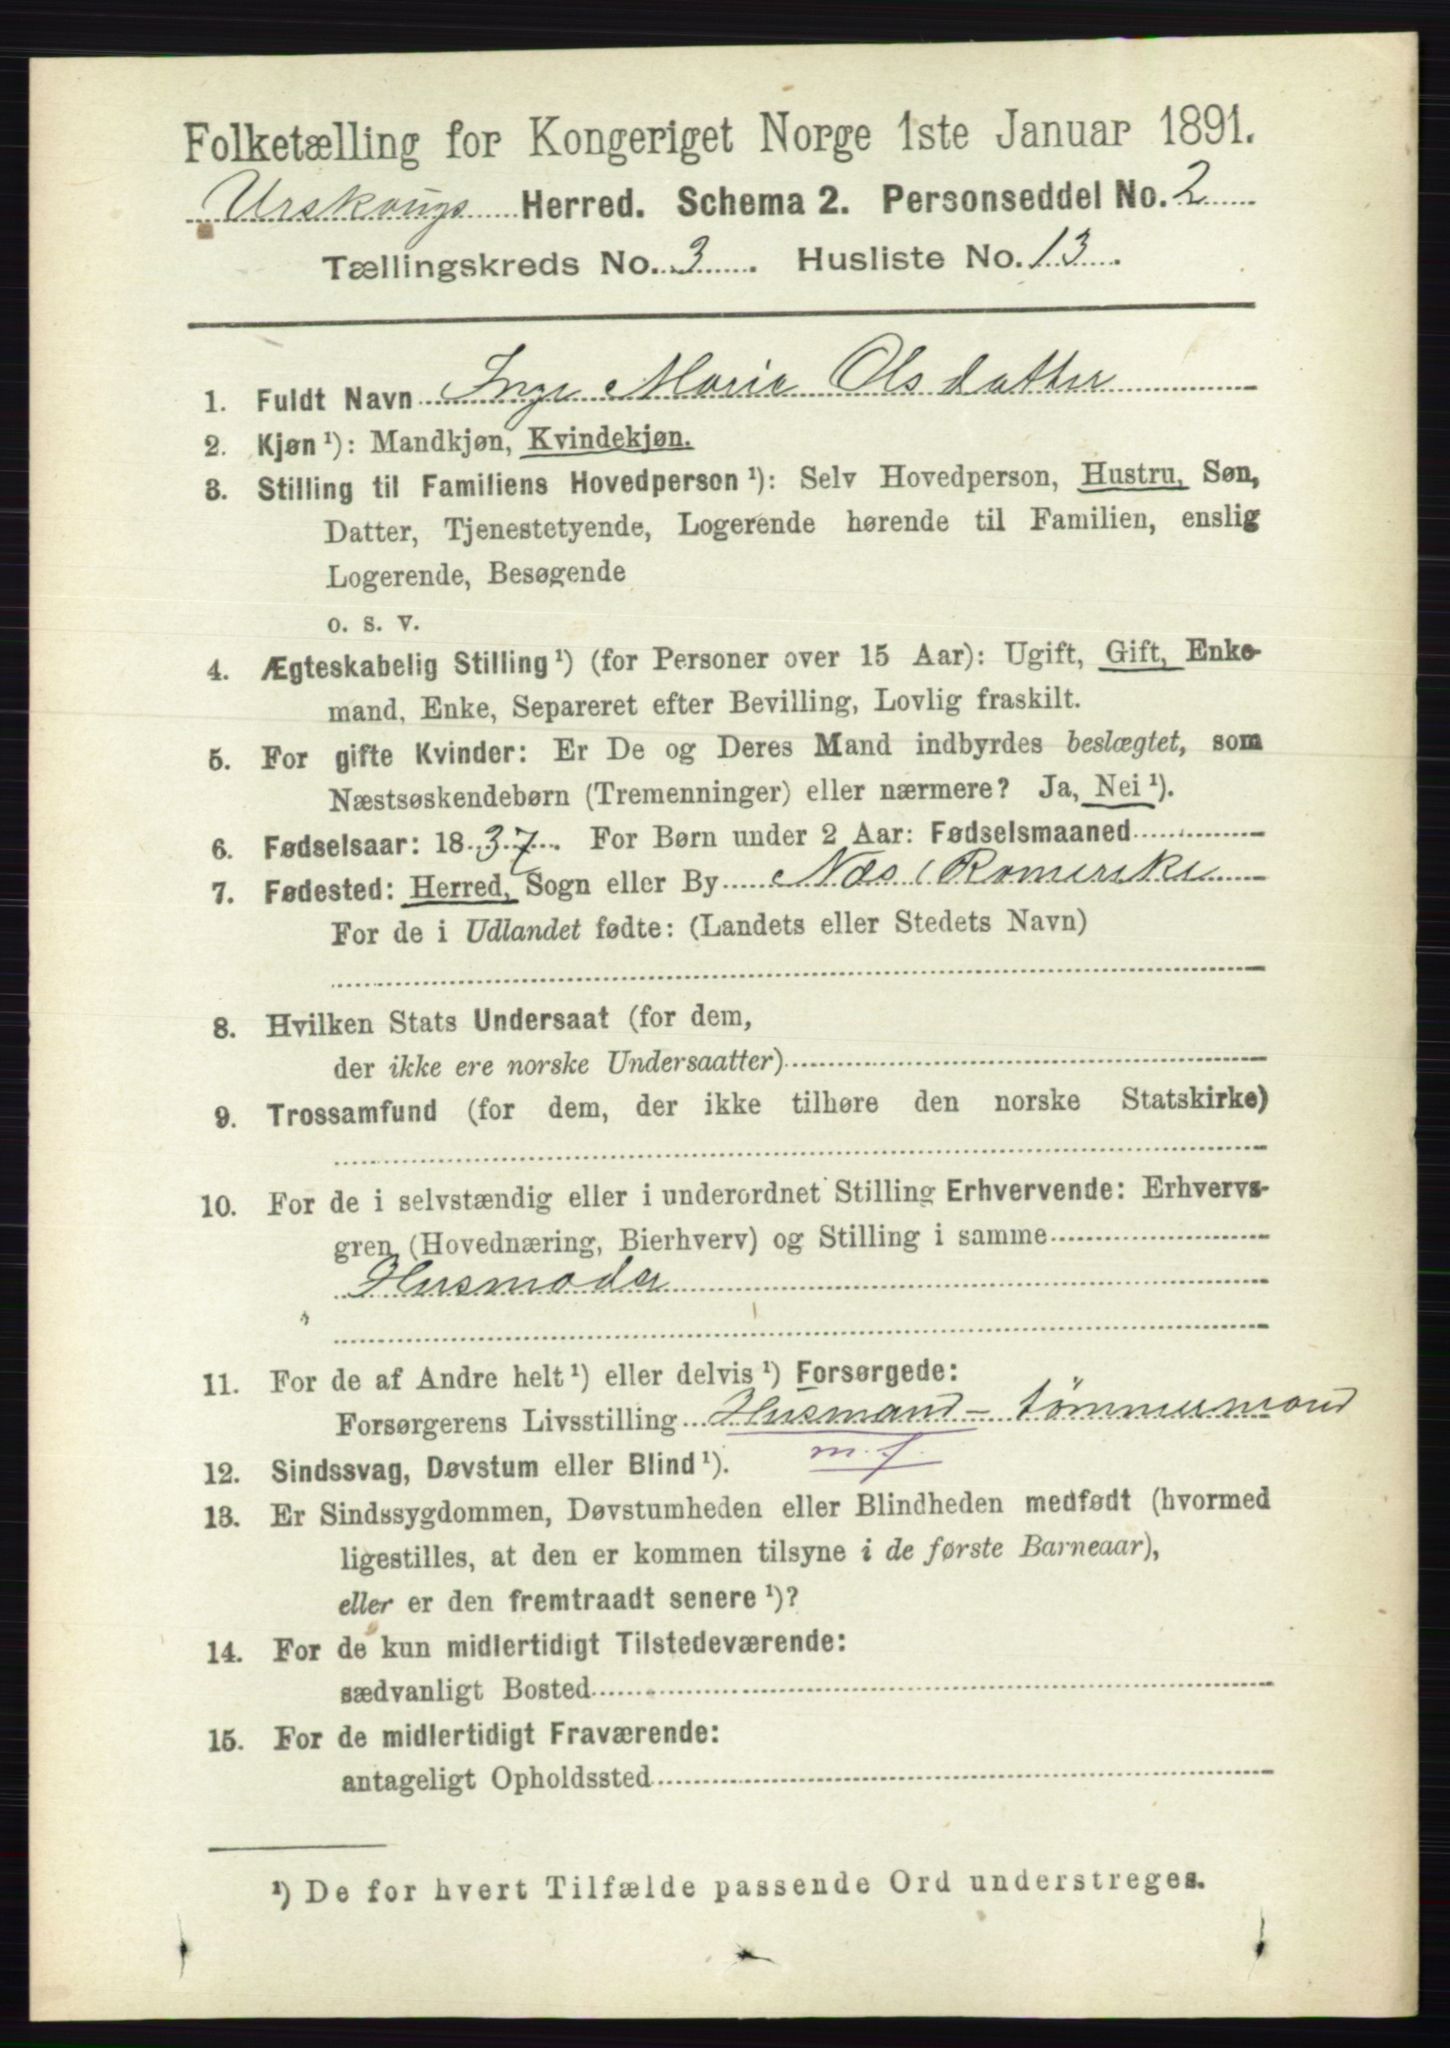 Folketælling for Kongeriget Norge 1ste Januar 1891.
Urskougs Herred. Schema 2. Personseddel No. 2
Tællingskreds No. 3. Husliste No. 13.
1. Fuldt Navn Inge Marie Olsdatter
2. Kjøn ¹): Mandkjøn, Kvindekjøn.
3. Stilling til Familiens Hovedperson ¹): Selv Hovedperson, Hustru, Søn,
Datter, Tjenestetyende, Logerende hørende til Familien, enslig
Logerende, Besøgende
o. s. v.
4. Ægteskabelig Stilling ¹) (for Personer over 15 Aar): Ugift, Gift, Enke-
mand, Enke, Separeret efter Bevilling, Lovlig fraskilt.
5. For gifte Kvinder: Er De og Deres Mand indbyrdes beslægtet, som
Næstsøskendebørn (Tremenninger) eller nærmere? Ja, Nei ¹).
6. Fødselsaar: 1837. For Børn under 2 Aar: Fødselsmaaned
7. Fødested: Herred, Sogn eller By Næs, Romerike
For de i Udlandet fødte: (Landets eller Stedets Navn)
8. Hvilken Stats Undersaat (for dem,
der ikke ere norske Undersaatter)
9. Trossamfund (for dem, der ikke tilhøre den norske Statskirke)
10. For de i selvstændig eller i underordnet Stilling Erhvervende: Erhvervs-
gren (Hovednæring, Bierhverv) og Stilling i samme
Husmoder
11. For de af Andre helt ¹) eller delvis ¹) Forsørgede:
Forsørgerens Livsstilling Husmand – tömmermand
m. j.
12. Sindssvag, Døvstum eller Blind ¹).
13. Er Sindssygdommen, Døvstumheden eller Blindheden medfødt (hvormed
ligestilles, at den er kommen tilsyne i de første Barneaar),
eller er den fremtraadt senere ¹)?
14. For de kun midlertidigt Tilstedeværende:
sædvanligt Bosted
15. For de midlertidigt Fraværende:
antageligt Opholdssted
¹) De for hvert Tilfælde passende Ord understreges.